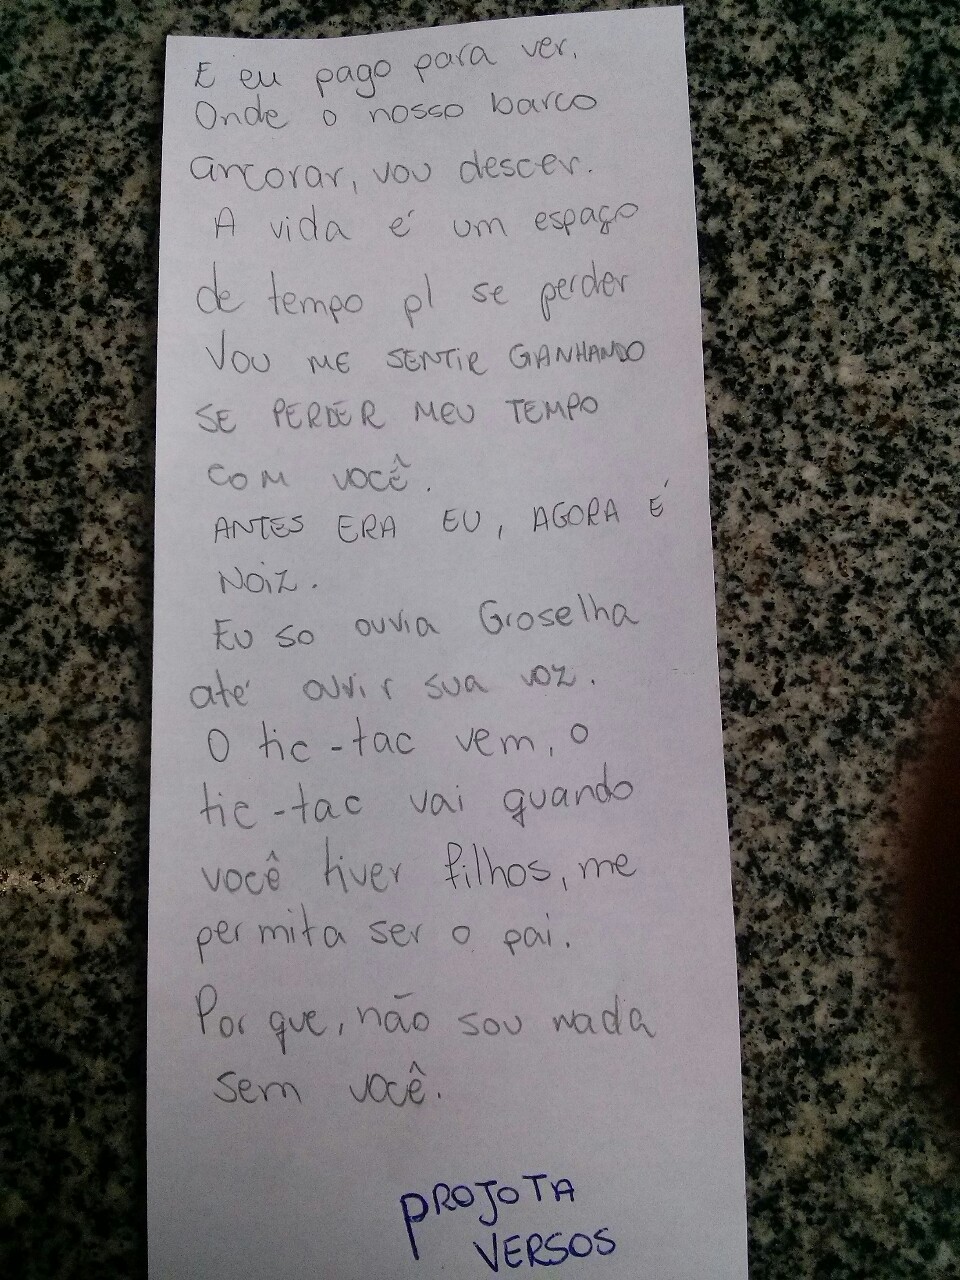 E eu pago para ver,
Onde o nosso barco
ancorar, vou descer.
A vida é um espaço
de tempo p/ se perder
VOU ME SENTIR GANHANDO
SE PERDER MEU TEMPO
COM VOCÊ.
ANTES ERA EU, AGORA É
NOIZ.
EU SO ouvia Groselha
até ouvir sua voz.
O tic-tac vem, o
tic-tac vai quando
você tiver filhos, me
permita ser o pai.
Por que, não sou nada
sem você.
PROJOTA
VERSOS